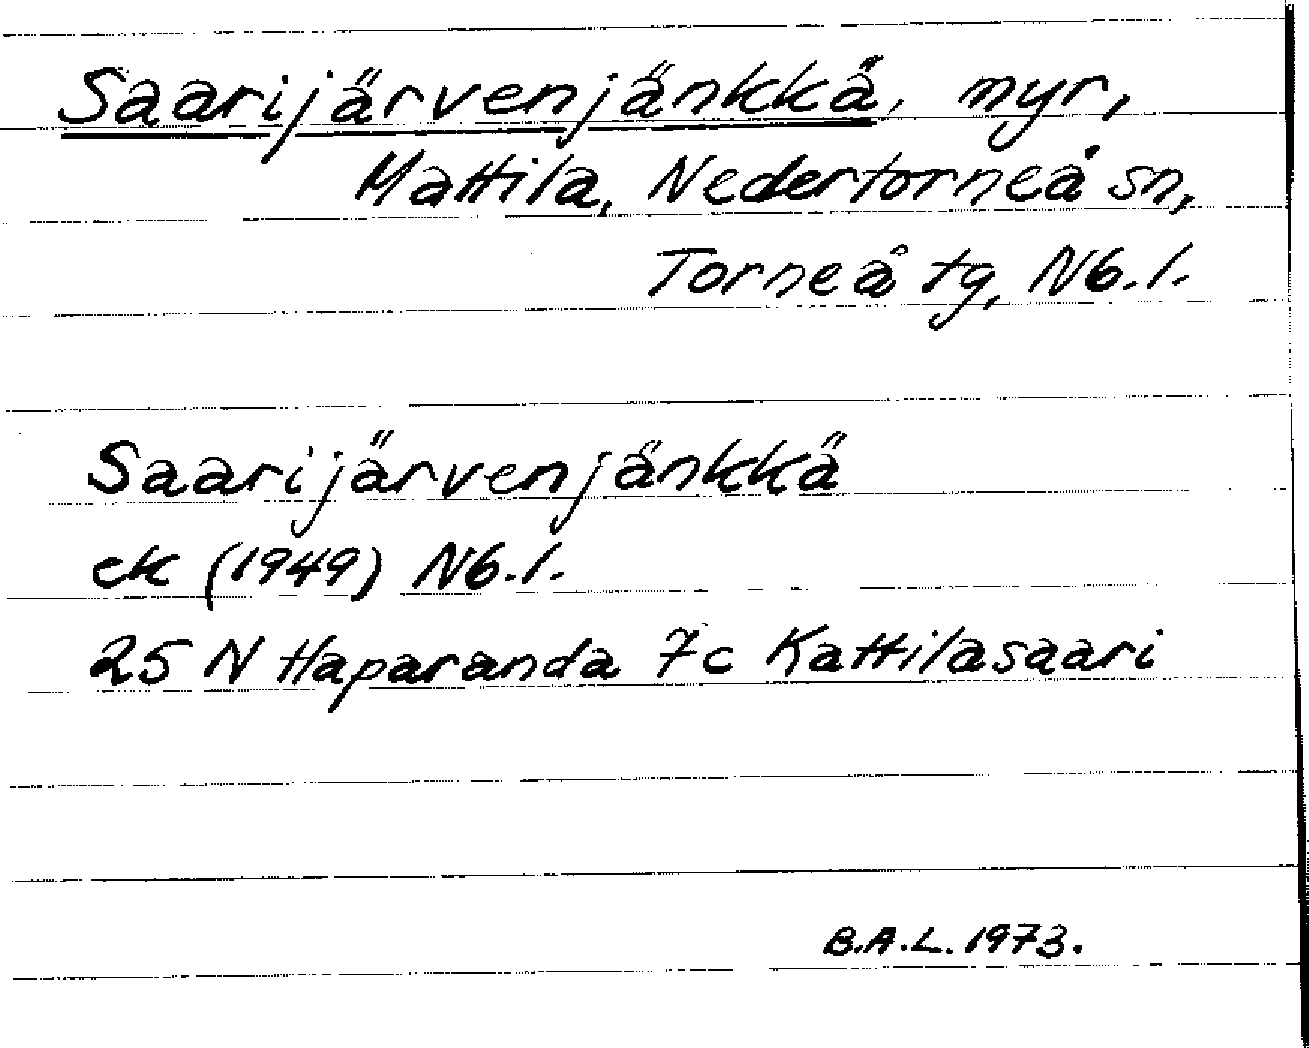 Saarijärvenjänkkä, myr,
Mattila, Nedertorneå sn,
Torneå tg, Nb.l.
Saarijärvenjänkkä
ek (1949) Nb.l.
25 N Haparanda 7c Kattilasaari
B.A.L. 1973.